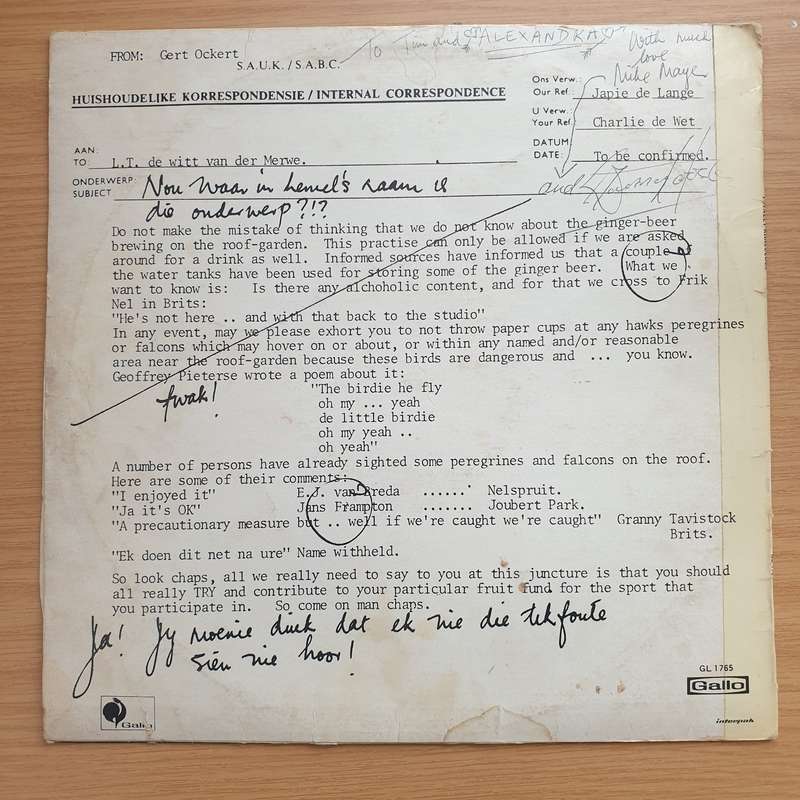 FROM: Gert Ockert
S.A.U.K. / S.A.B.C.
To Tim and "ALEXANDRA" With much
love
Mike Maye
HUISHOUDELIKE KORRESPONDENSIE / INTERNAL CORRESPONDENCE
Ons Verw.:
Our Ref.: Japie de Lange
U Verw.:
Your Ref.: Charlie de Wet
DATUM:
DATE: To be confirmed.
AAN:
TO: L.T. de witt van der Merwe.
ONDERWERP:
SUBJECT Nou waar in hemel's naam is
die onderwerp?!?
and
Do not make the mistake of thinking that we do not know about the ginger-beer
brewing on the roof-garden. This practise can only be allowed if we are asked
around for a drink as well. Informed sources have informed us that a couple of
the water tanks have been used for storing some of the ginger beer. What we
want to know is: Is there any alchoholic content, and for that we cross to Frik
Nel in Brits:
"He's not here .. and with that back to the studio"
In any event, may we please exhort you to not throw paper cups at any hawks peregrines
or falcons which may hover on or about, or within any named and/or reasonable
area near the roof-garden because these birds are dangerous and ... you know.
Geoffrey Pieterse wrote a poem about it:
"The birdie he fly
fwak!
oh my ... yeah
de little birdie
oh my yeah ..
oh yeah"
A number of persons have already sighted some peregrines and falcons on the roof.
Here are some of their comments:
"I enjoyed it" E.J. van Breda ...... Nelspruit.
"Ja it's OK" Jans Frampton ....... Joubert Park.
"A precautionary measure but .. well if we're caught we're caught" Granny Tavistock
Brits.
"Ek doen dit net na ure" Name withheld.
So look chaps, all we really need to say to you at this juncture is that you should
all really TRY and contribute to your particular fruit fund for the sport that
you participate in. So come on man chaps.
Ja! Jy moenie dink dat ek nie die tikfoute
sien nie hoor!
GL 1765
Gallo
Gallo
interpak